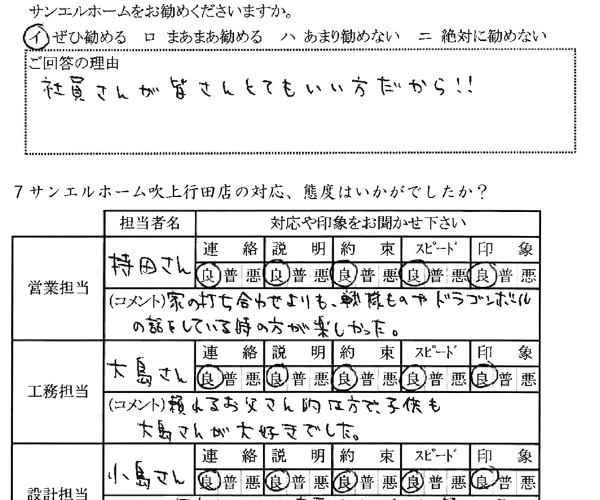 サンエルホームをお勧めくださいますか。
イ ぜひ勧める ロ まあまあ勧める ハ あまり勧めない ニ 絶対に勧めない
ご回答の理由
社員さんが皆さんとてもいい方だから!!
7 サンエルホーム吹上行田店の対応、態度はいかがでしたか？
担当者名 対応や印象をお聞かせ下さい
営業担当 持田さん 連絡 説明 約束 スピード 印象
良 普 悪 良 普 悪 良 普 悪 良 普 悪 良 普 悪
(コメント) 家の打ち合わせよりも、戦隊ものやドラゴンボール
の話をしている時の方が楽しかった。
工務担当 大島さん 連絡 説明 約束 スピード 印象
良 普 悪 良 普 悪 良 普 悪 良 普 悪 良 普 悪
(コメント) 頼れるお父さん的な方で、子供も
大島さんが大好きでした。
設計担当 小島さん 連絡 説明 約束 スピード 印象
良 普 悪 良 普 悪 良 普 悪 良 普 悪 良 普 悪